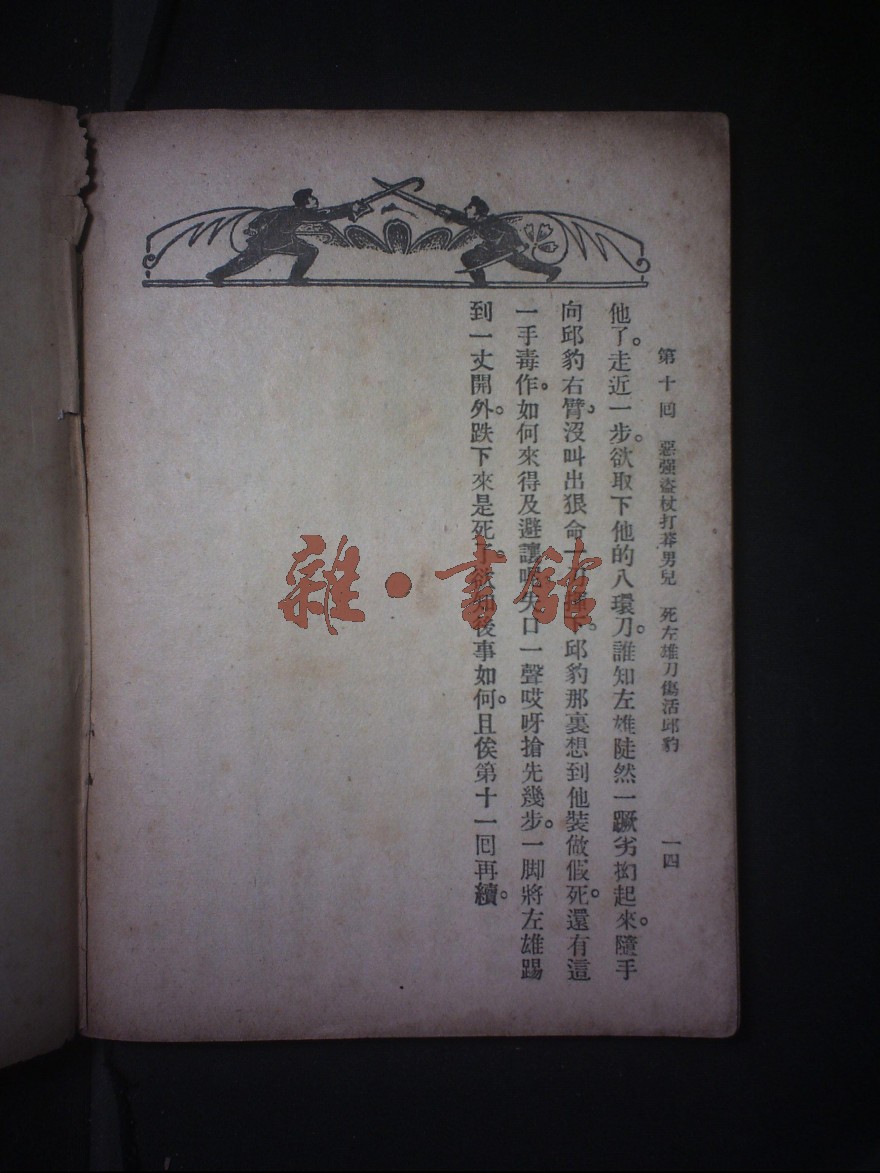 第十回　惡强盗杖打莽男兒　死左雄刀傷活邱豹　一四
他了。走近一步。欲取下他的八環刀。誰知左雄陡然一蹶劣抝起來。隨手
向邱豹右臂。沒叫出狠命一刀下。邱豹那裏想到他裝做假死。還有這
一手毒作。如何來得及避讓呢失口一聲哎呀搶先幾步。一脚將左雄踢
到一丈開外。跌下來是死了。欲知後事如何。且俟第十一回再續。
雜·書館